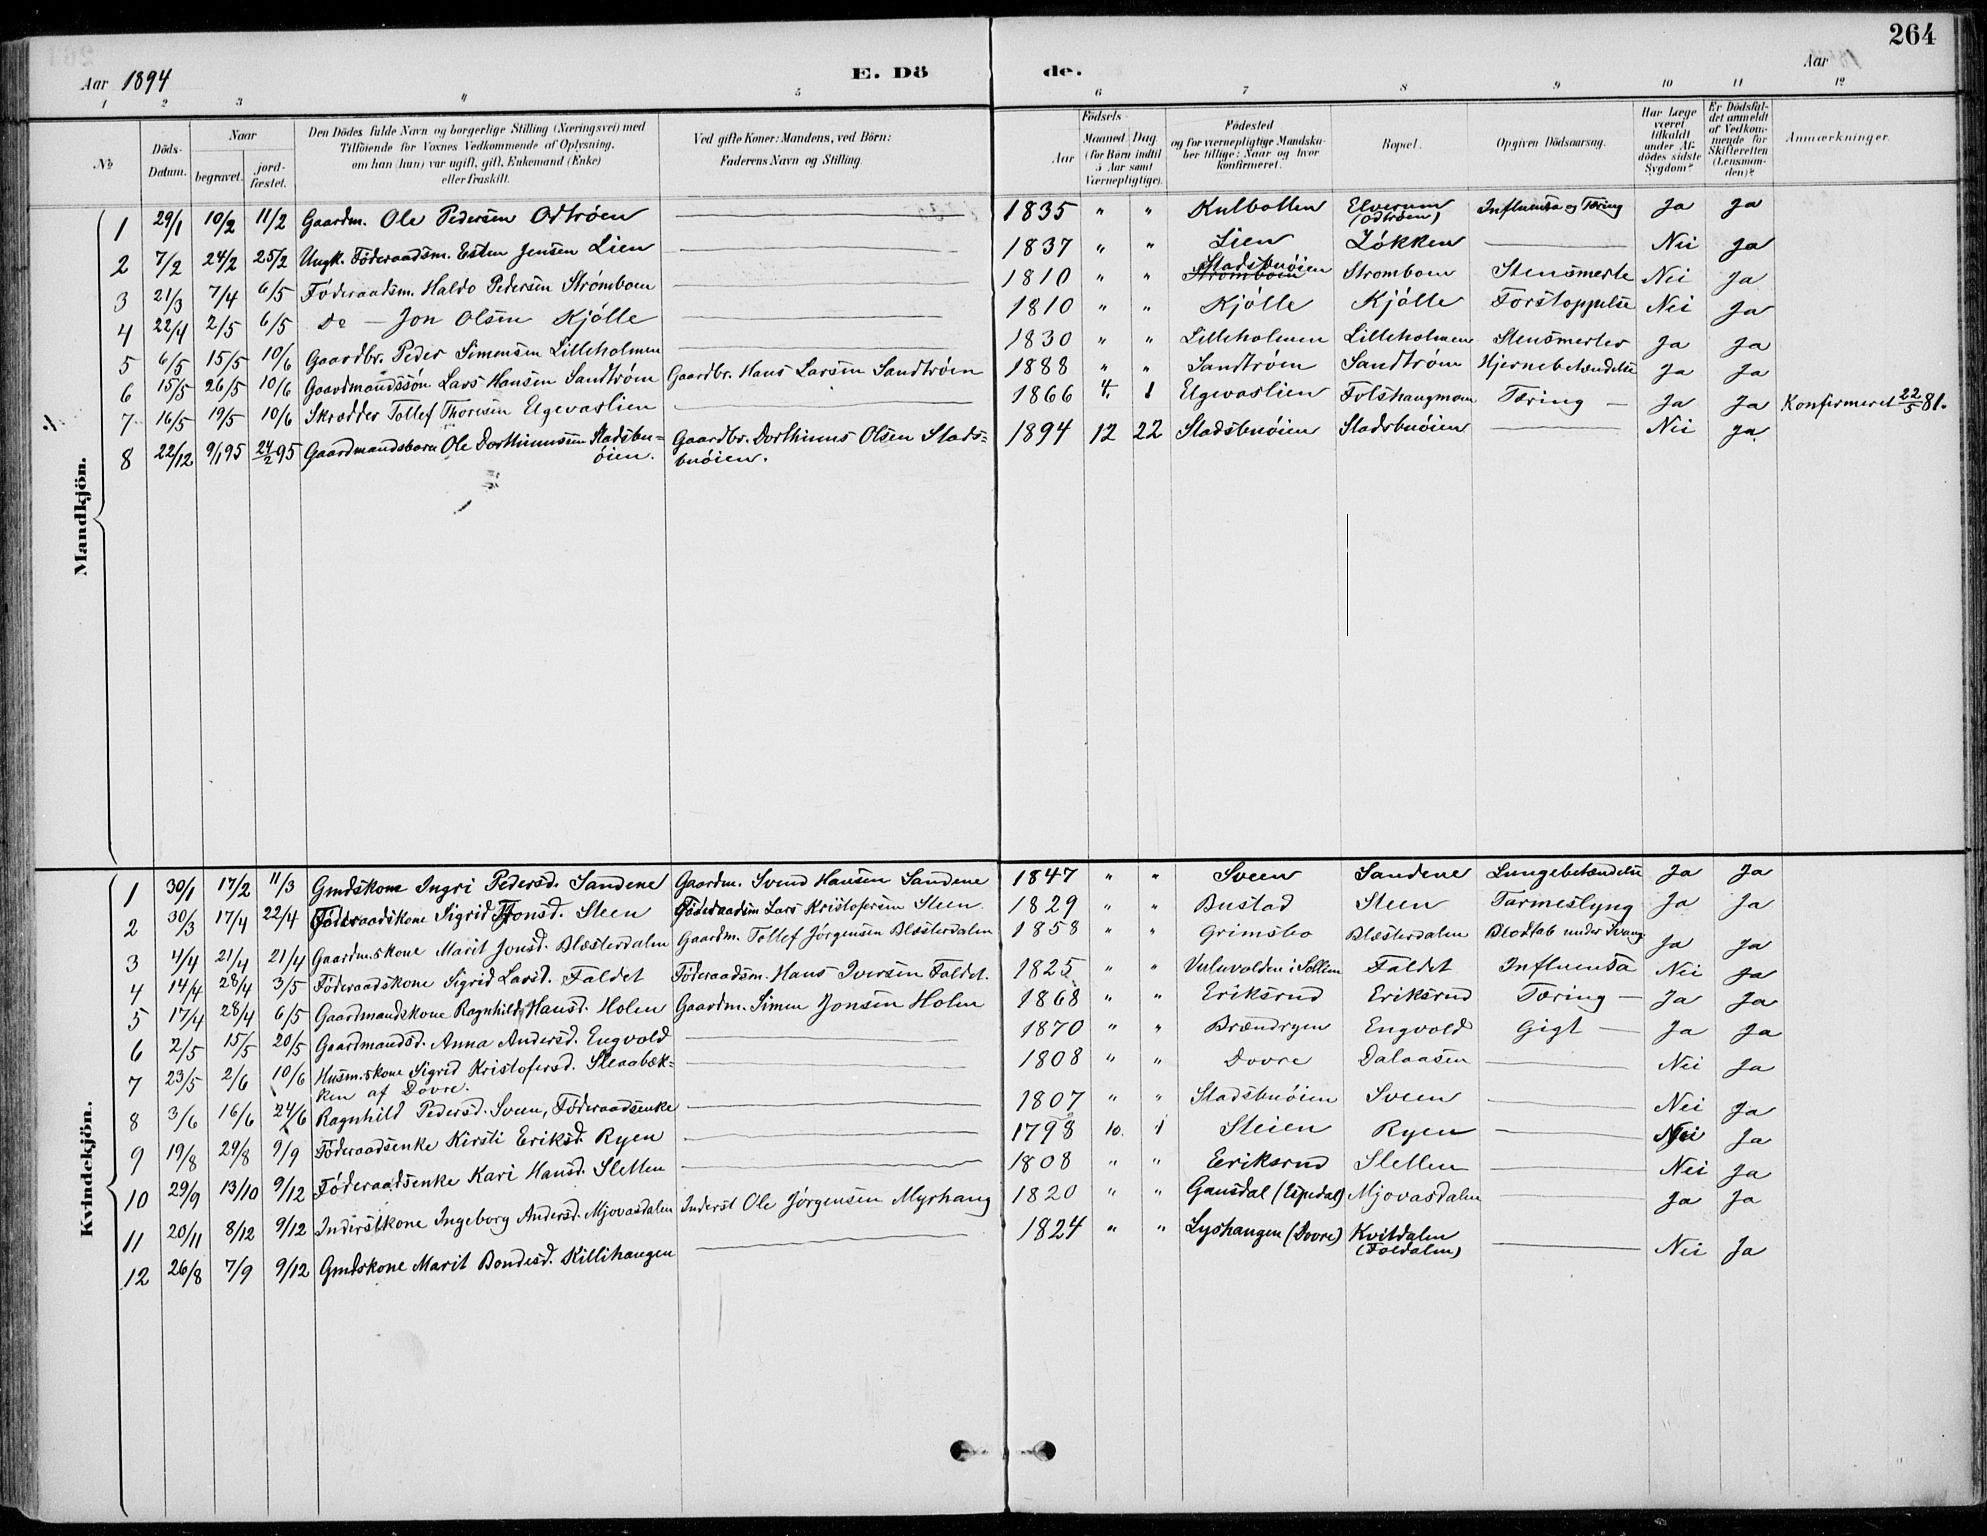 264
Aar 1894
E. Dö de.
Aar
1 2 3 4 5 6 7 8 9 10 11 12
№
Döds-Datum.
Naar
begravet.
jord-fæstet.
Den Dödes fulde Navn og borgerlige Stilling (Næringsvei) med
Tilföiende for Voxnes Vedkommende af Oplysning,
om han (hun) var ugift, gift, Enkemand (Enke)
eller fraskilt.
Ved gifte Koner: Mandens, ved Börn:
Faderens Navn og Stilling.
Födsels
Aar
Maaned Dag
(for Börn indtil
5 Aar samt
Værnepligtige).
Födested
og for værnepligtige Mandsku-
ber tillige: Naar og hvor
konfirmeret.
Bopæl.
Opgiven Dödsaarsag.
Har Læge
været
tilkaldt
under Af-
dödes sidste
Sygdom?
Er Dödsfal-
det anmeldt
af Vedkom-
mende for
Skifteretten
(Lensman-
den)?
Anmerkninger.
Mandkjön.
1 29/1 10/2 11/2 Gaardm. Ole Pedersen Odtrøen 1835 " " Kulbotten Elverum (Odtrøen) Influensa og Tæring Ja Ja
2 7/2 24/2 25/2 Ungk. Föderaadsm. Esten Jensen Lien 1837 " " Lien Løkken Nei Ja
3 21/3 7/4 6/5 Föderaadsm. Haldo Pedersen Strømboen 1810 " " Strømboen Stadsbuøien Stromboen Stensmerte Nei Ja
4 22/4 2/5 6/5 Do — Jon Olsen Kjølle 1810 " " Kjølle Kjølle Forstoppelse Nei Ja
5 6/5 15/5 10/6 Gaardbr. Peder Simensen Lilleholmen 1830 " " Lilleholmen Lilleholmen Stensmerter Ja Ja
6 15/5 26/5 10/6 Gaardmandssøn Lars Hansen Sandtrøen Gaardbr. Hans Larsen Sandtrøen 1888 " " Sandtrøen Sandtrøen Hjernebetændelse Ja Ja
7 16/5 19/5 10/6 Skrædder Tollef Thoresen Elgevaslien 1866 4. 1 Elgevaslien Folshaugmoen Tæring Ja Ja Konfirmeret 22/5 81.
8 22/12 9/1 95 24/2 95 Gaardmandsbarn Ole Dorthinussen Stadsbu-
øien. Gaardbr. Dorthinus Olsen Stads=
buøien. 1894 12 22 Stadsbuøien Stadsbuøien Nei Ja
Kvindekjön.
1 30/1 17/2 11/3 Gmdskone Ingri Pedersd. Sandene Gaardm. Svend Hansen Sandene 1847 " " Sveen Sandene Lungebetændelse Ja Ja
2 30/3 17/4 22/4 Föderaadskone Sigrid Jonsd. Steen Föderaadsm Lars Kristofersen Steen. 1829 " " Bustad Steen Tarmeslyng Ja Ja
3 4/4 21/4 21/4 Gaardm.skone Marit Jonsd. Blæsterdalen Gaardm. Tollef Jørgensen Blæsterdalen 1858 " " Grimsbo Blæsterdalen Blodtab under Svang. Ja Ja
4 14/4 28/4 3/5 Föderaadskone Sigrid Larsd. Faldet Föderaadsm. Hans Iversen Faldet. 1825 " " i Sollien Faldet Influensa Nei Ja
5 17/4 28/4 6/5 Gaardmandskone Ragnhild Hansd. Holen Gaardm. Simen Jonsen Holen 1868 " " Eriksrud Eriksrud Tæring Ja Ja
6 2/5 15/5 20/5 Gaardmandsd. Anna Andersd. Engvold 1870 " " Brændryen Engvold Gigt Ja Ja
7 23/5 2/6 10/6 Husm.skone Sigrid Kristofersd. Sleaabæk-
ken af Dovre. 1808 " " Dovre Dalaasen Nei Ja
8 3/6 16/6 24/6 Ragnhild Pedersd. Sveen, Föderaadsenke 1807 " " Stadsbuøien Sveen Nei Ja
9 19/8 29/8 9/9 Föderaadsenke Kirsti Eriksd. Ryen 1798 10. 1 Steien Ryen Nei Ja
10 29/9 13/10 9/12 Föderaadsenke Kari Hansd. Sletten 1808 " " Eriksrud Sletten Nei Ja
11 20/11 8/12 9/12 Inderstkone Ingeborg Andersd. Mjovasdalen Inderst Ole Jørgensen Myrhaug 1820 " " Gausdal (Espedal) Mjovasdalen Ja Ja
12 26/8 7/9 9/12 Gmdskone Marit Bondesd. Killihaugen 1824 " " Lyshaugen (Dovre) Kvitdalen (Foldalen) Nei Ja